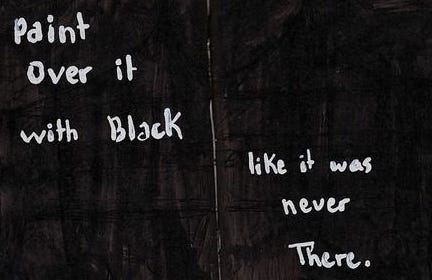 Paint
Over it
with Black
like it was
never
There.